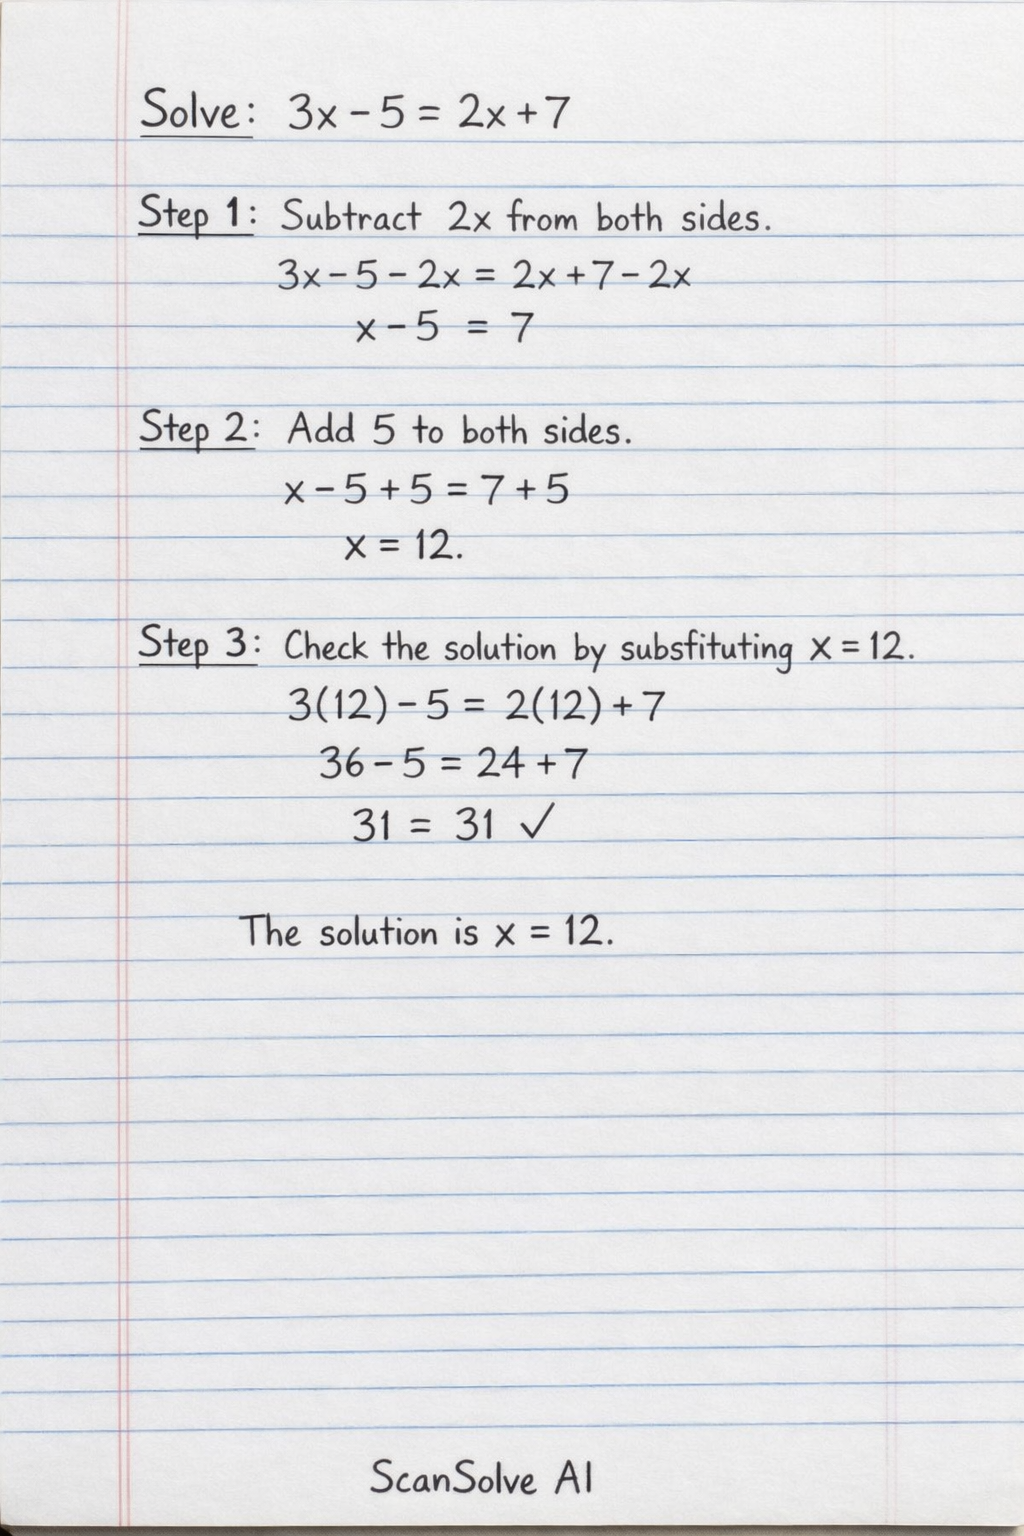 Solve: 3x - 5 = 2x + 7
Step 1: Subtract 2x from both sides.
3x - 5 - 2x = 2x + 7 - 2x
x - 5 = 7
Step 2: Add 5 to both sides.
x - 5 + 5 = 7 + 5
x = 12.
Step 3: Check the solution by subsfituting x = 12.
3(12) - 5 = 2(12) + 7
36 - 5 = 24 + 7
31 = 31 ✓
The solution is x = 12.
ScanSolve AI